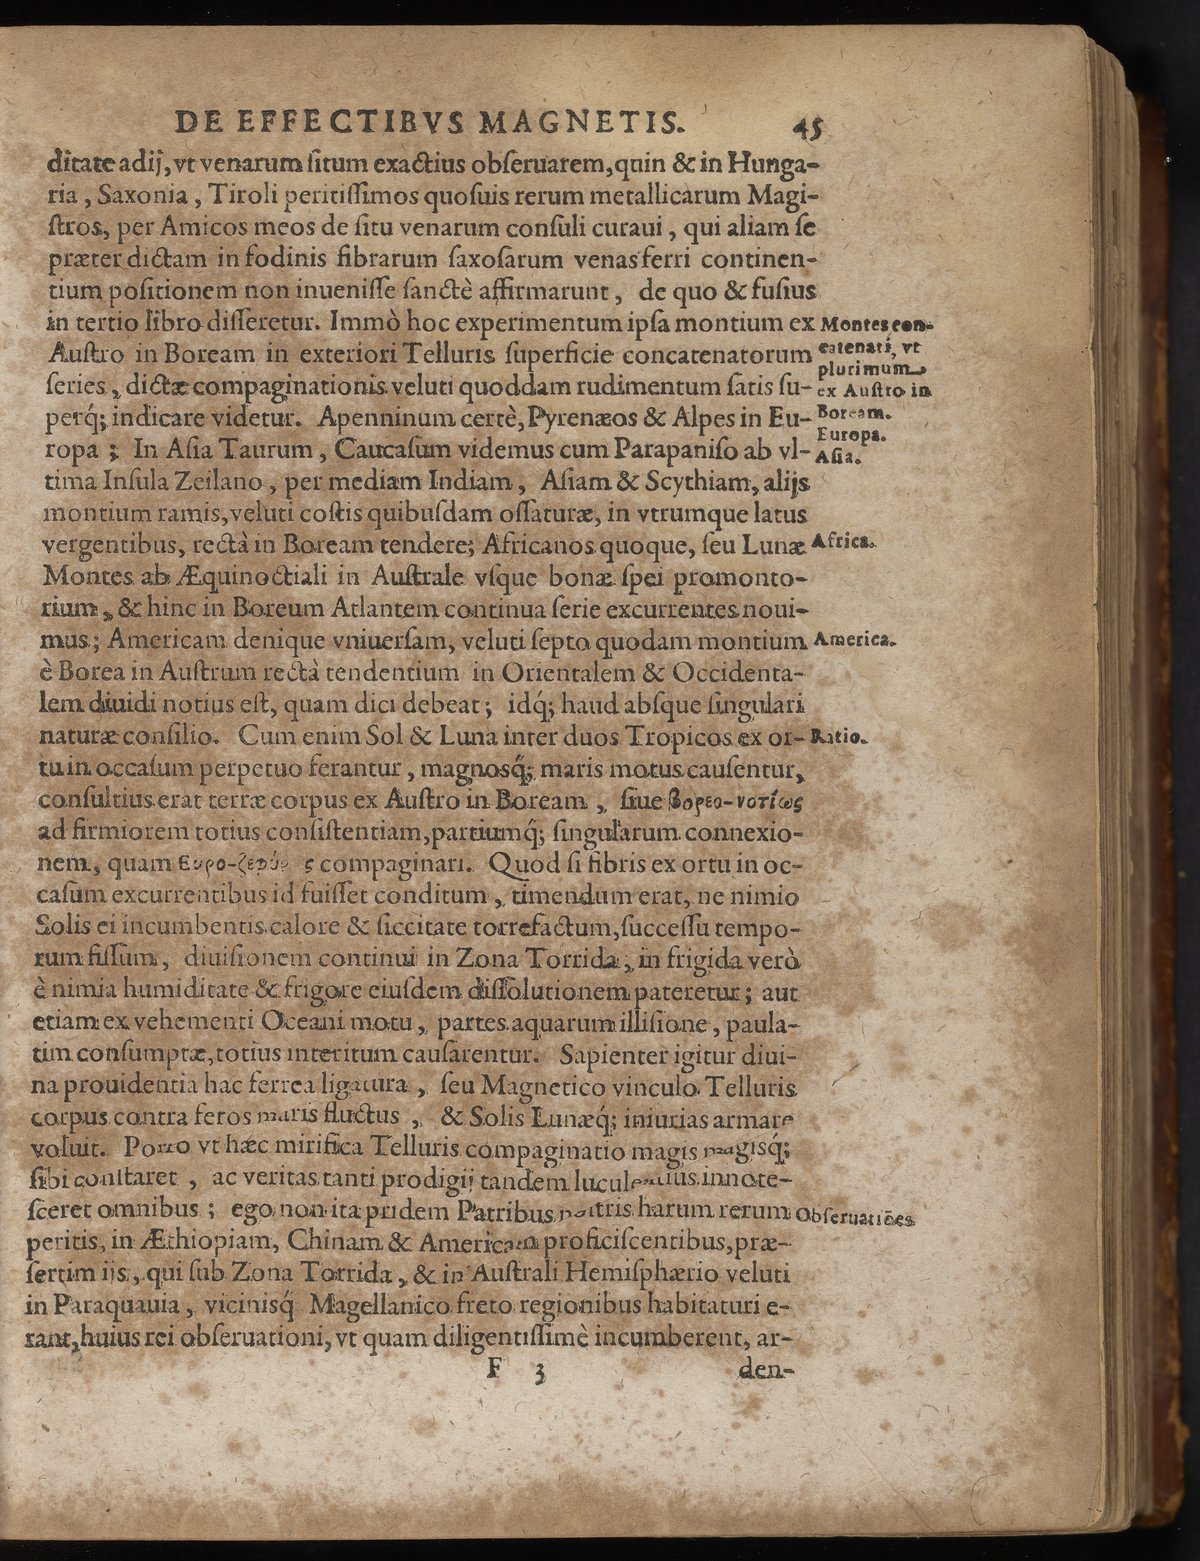 DE EFFECTIBVS MAGNETIS. 45
ditate adij, vt venarum ſitum exactius obſeruarem, quin & in Hunga-
ria, Saxonia, Tiroli peritiſſimos quoſuis rerum metallicarum Magi-
ſtros, per Amicos meos de ſitu venarum conſuli curaui, qui aliam ſe
præter dictam in fodinis fibrarum ſaxoſarum venas ferri continen-
tium poſitionem non inueniſſe ſanctè affirmarunt, de quo & fuſius
in tertio libro diſſeretur. Immò hoc experimentum ipſa montium ex
Auſtro in Boream in exteriori Telluris ſuperficie concatenatorum
ſeries, dictæ compaginationis veluti quoddam rudimentum ſatis ſu-
perq́; indicare videtur. Apenninum certè, Pyrenæos & Alpes in Eu-
ropa; In Aſia Taurum, Caucaſum videmus cum Parapaniſo ab vl-
tima Inſula Zeilano, per mediam Indiam, Aſiam & Scythiam, alijs
montium ramis, veluti coſtis quibuſdam oſſaturæ, in vtrumque latus
vergentibus, rectà in Boream tendere; Africanos quoque, ſeu Lunæ
Montes ab Æquinoctiali in Auſtrale vſque bonæ ſpei promonto-
rium, & hinc in Boreum Atlantem continua ſerie excurrentes noui-
mus; Americam denique vniuerſam, veluti ſepto quodam montium
è Borea in Auſtrum rectà tendentium in Orientalem & Occidenta-
lem diuidi notius eſt, quam dici debeat; idq́; haud abſque ſingulari
naturæ conſilio. Cum enim Sol & Luna inter duos Tropicos ex or-
tu in occaſum perpetuo ferantur, magnosq́; maris motus cauſentur,
conſultius erat terræ corpus ex Auſtro in Boream, ſiue βορεο-νοτίως
ad firmiorem totius conſiſtentiam, partiumq́; ſingularum connexio-
nem, quam compaginari. Quod ſi fibris ex ortu in oc-
caſum excurrentibus id fuiſſet conditum, timendum erat, ne nimio
Solis ei incumbentis calore & ſiccitate torrefactum, ſucceſſu tempo-
rum fiſſum, diuiſionem continui in Zona Torrida, in frigida verò
è nimia humiditate & frigore eiuſdem diſſolutionem pateretur; aut
etiam ex vehementi Oceani motu, partes aquarum illiſione, paula-
tim conſumptæ, totius interitum cauſarentur. Sapienter igitur diui-
na prouidentia hac ferrea ligatura, ſeu Magnetico vinculo Telluris
corpus contra feros maris fluctus, & Solis Lunæq́; iniurias armare
voluit. Porro vt hæc mirifica Telluris compaginatio magis magisq́;
ſibi conſtaret, ac veritas tanti prodigij tandem luculentius innote-
ſceret omnibus; ego non ita pridem Patribus noſtris harum rerum
peritis, in Æthiopiam, Chinam & Americam proficiſcentibus, præ-
ſertim ijs, qui ſub Zona Torrida, & in Auſtrali Hemiſphærio veluti
in Paraquauia, vicinisq́ Magellanico freto regionibus habitaturi e-
rant, huius rei obſeruationi, vt quam diligentiſſimè incumberent, ar-
F 3 den-
Montes con-
catenati, vt
plurimum
ex Auſtro in
Boream.
Europa.
Aſia.
Africa.
America.
Ratio.
Obſeruationes